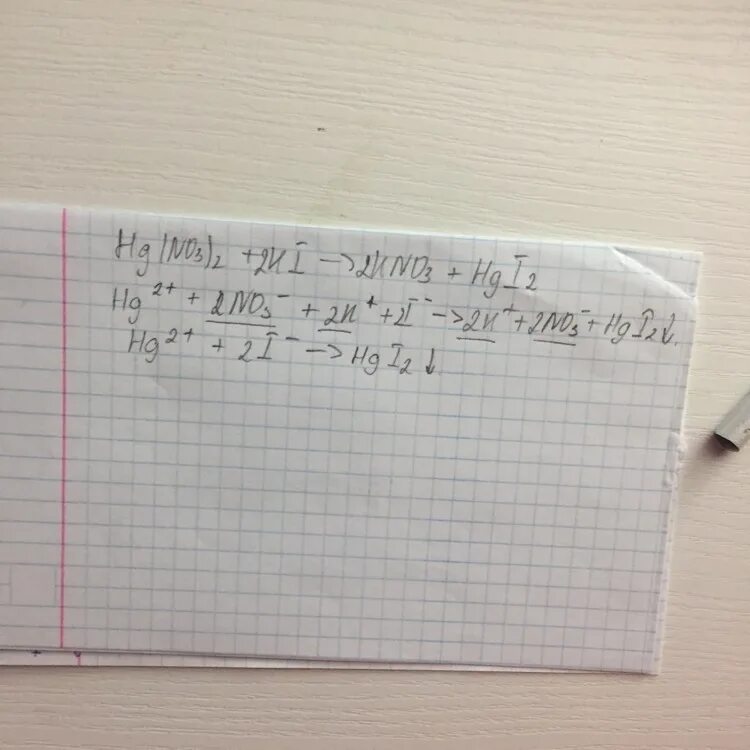 Hg(NO₃)₂ + 2KI → 2KNO₃ + HgI₂
Hg²⁺ + 2NO₃⁻ + 2K⁺ + 2I⁻ → 2K⁺ + 2NO₃⁻ + HgI₂↓.
Hg²⁺ + 2I⁻ → HgI₂↓.